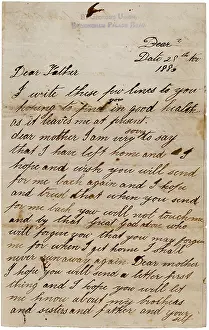 Dear
Date 28th Nov
1880
Dear Father
I write these few lines to you
hoping to find you in good health
as it leaves me at present.
dear mother I am very sorry to say
that I have left home and I
hope and wish you will send
for me back again and I hope
and trust that when you send
for me back you will not touch me
and by that great God above who
will forgive you that you may forgive
me for when I get home I shall
never run away again Dear mother
I hope you will send a letter first
thing and I hope you will let
me know about my brothers
and sisters and father and your